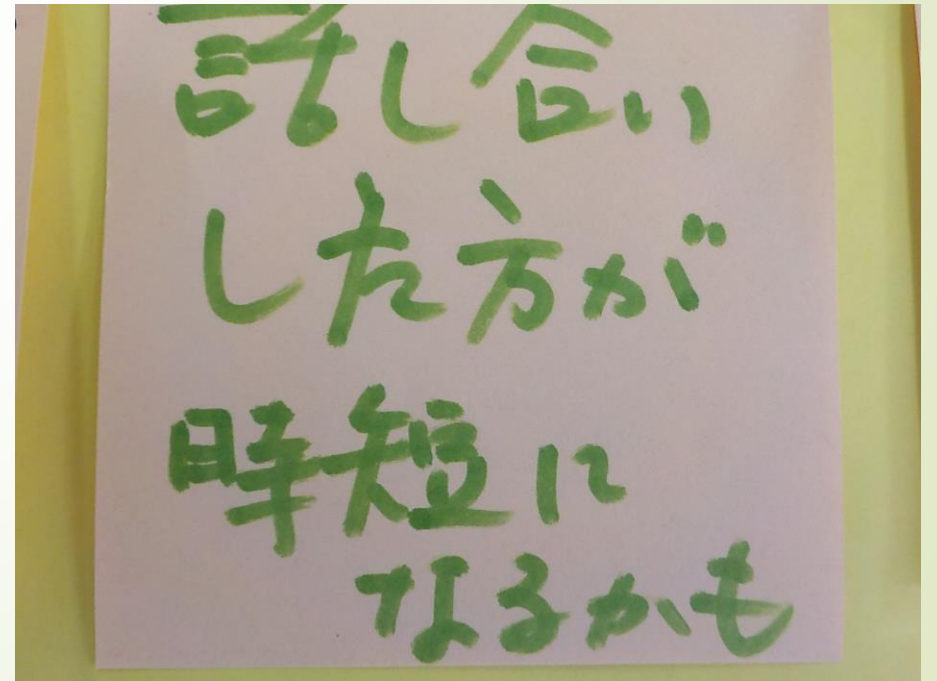 話し合い
した方が
時短に
なるかも